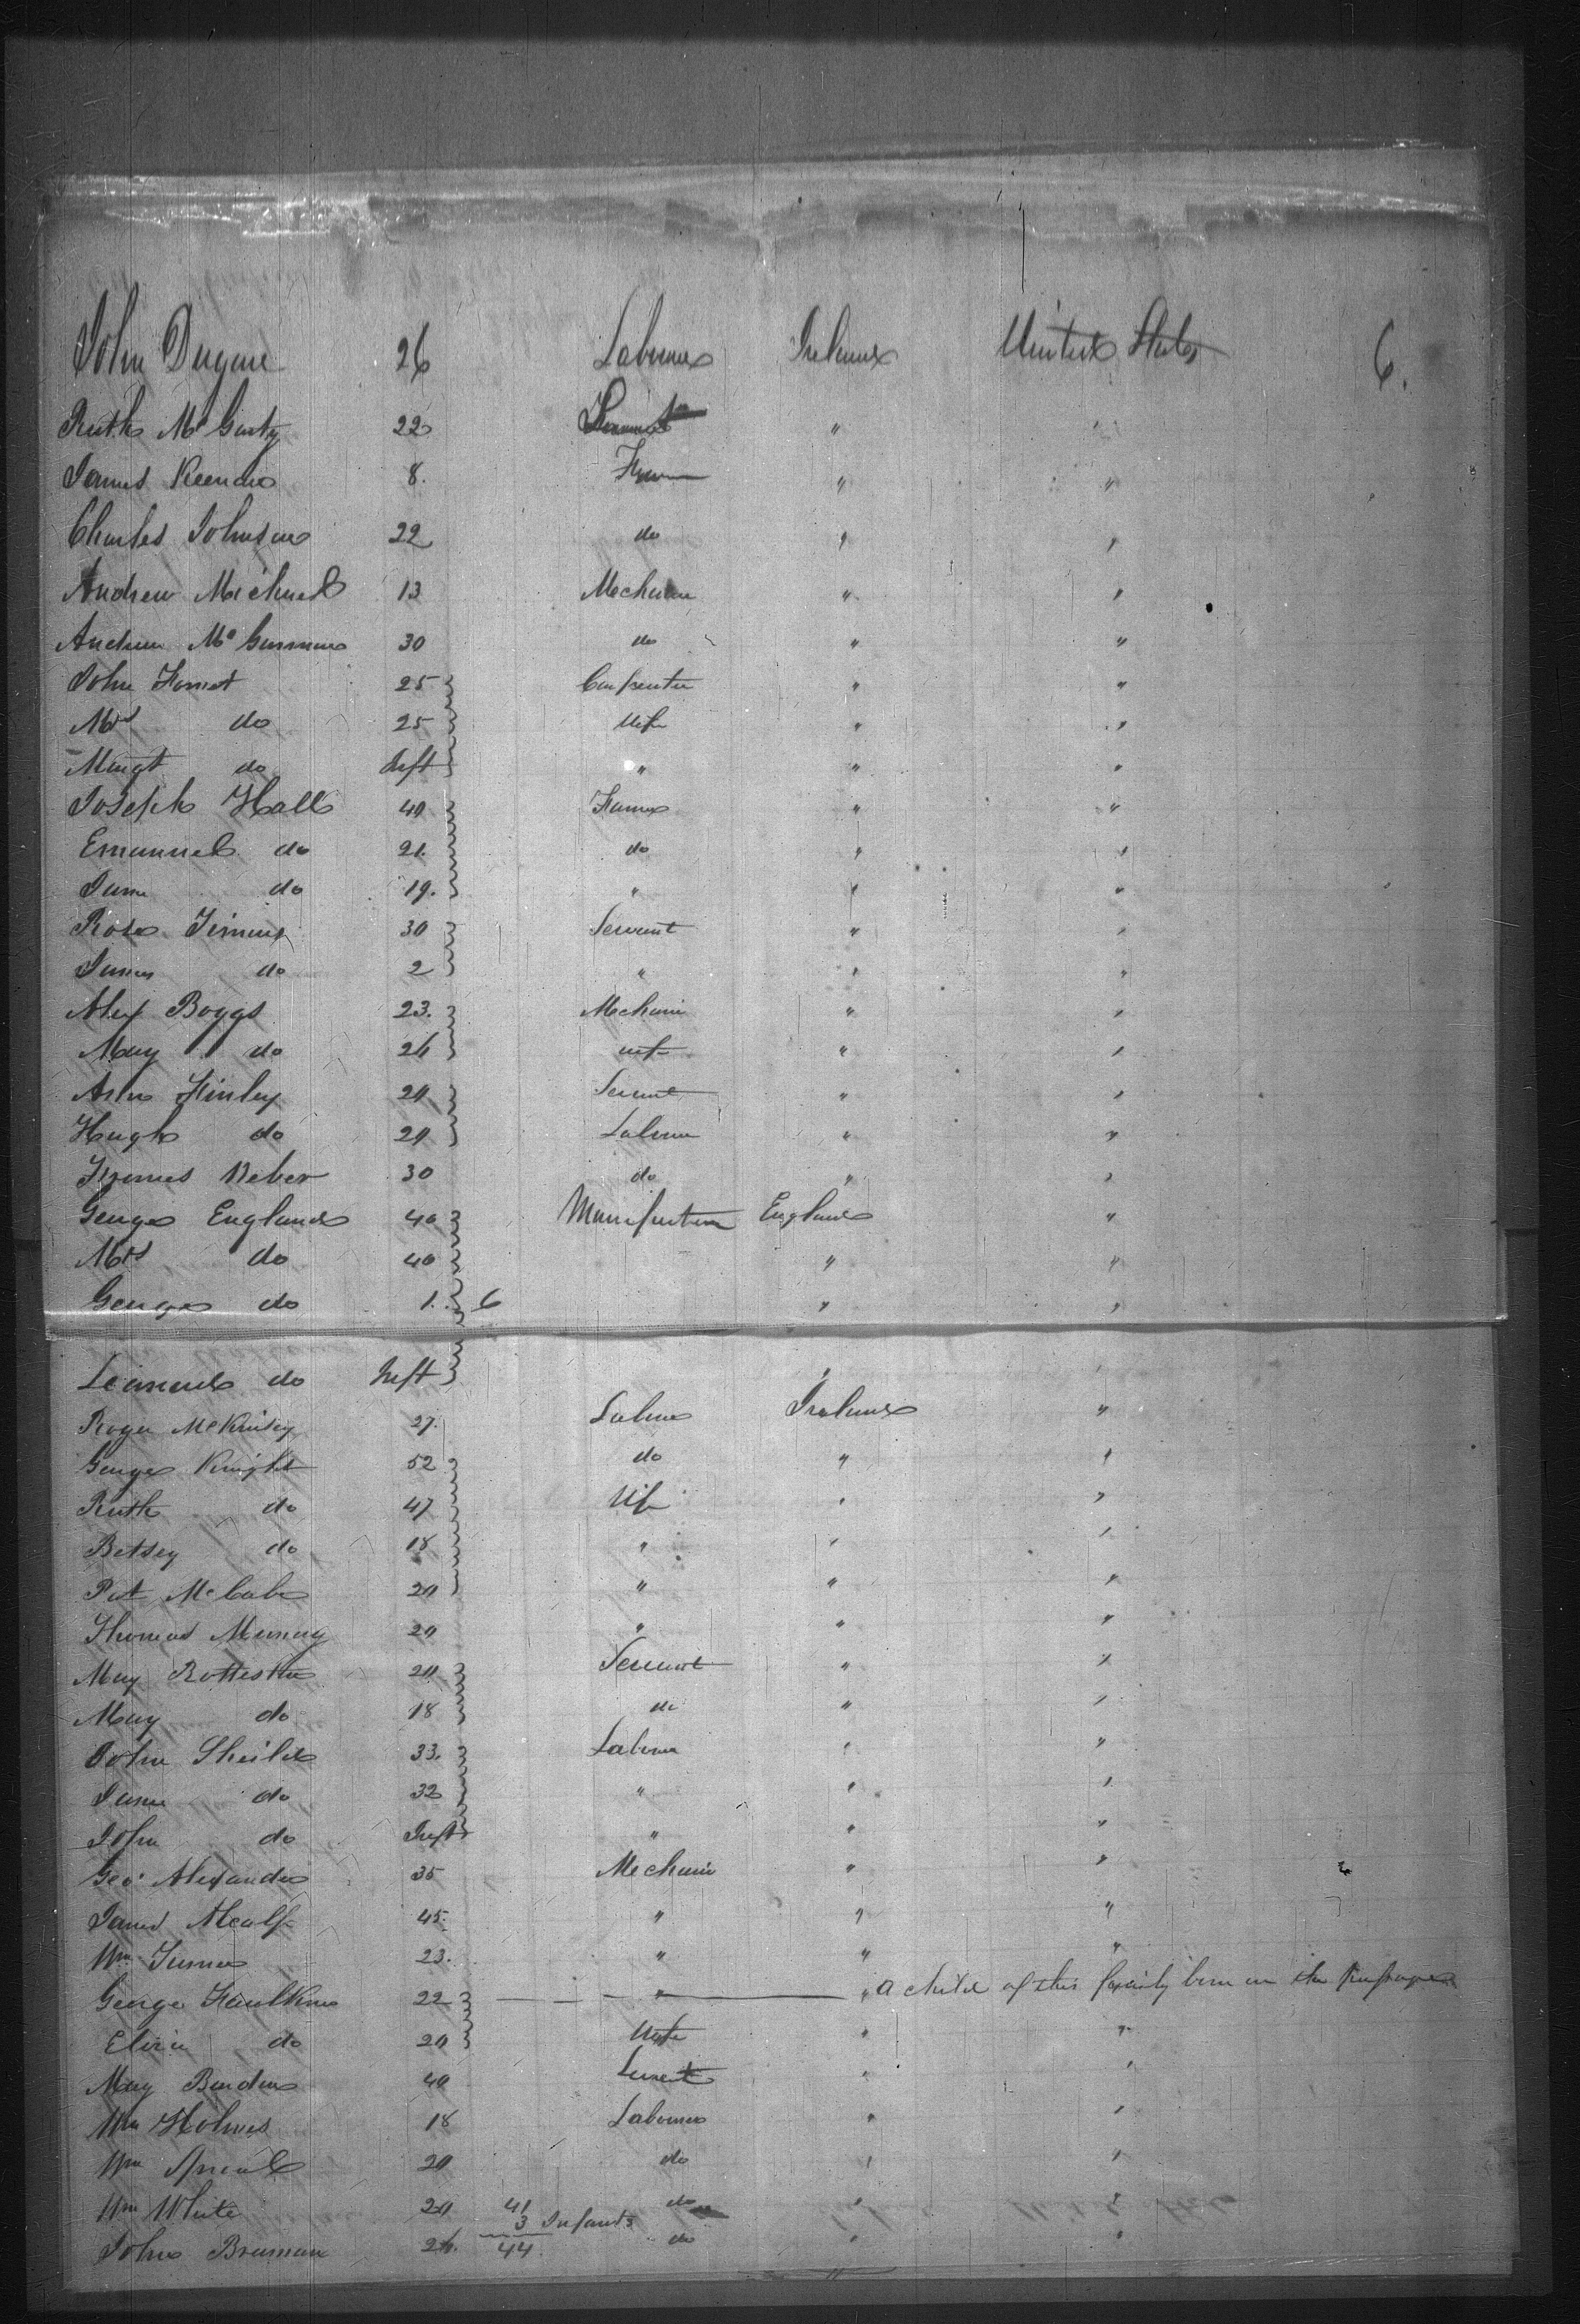 John Dugan 26 Labourer Ireland United States 6.
Ruth McGinty 22 Servant " "
James 8. Farmer " "
Charles Johnson 22 do " "
Andrew Michael 13 Mechanic " "
Andrew Mc 30 do " "
John Forrest 25 Carpenter " "
Mrs do 25 Wife " "
Margt do Inft " " "
Joseph Hall 40 Farmer " "
Emanuel do 21. do " "
Jane do 19. " " "
Rose 30 Servant " "
James do 2 " " "
Alex Boggs 23. Mechanic " "
Mary do 26 wife " "
Finley 20 Servant " "
Hugh do 20 Labourer " "
30 do " "
George England 40 Manufacturer England "
Mrs do 40 " "
George do 1. 6 " "
Leonard do Inft "
Roger McKinley 27. Labourer Ireland "
George Knight 52 do " "
Ruth do 47 Wife " "
Betsey do 18 " " "
Pat McCabe 20 " " "
Thomas Murray 20 " " "
Mary 20 Servant " "
Mary do 18 do " "
John Sheilds 33. Labourer " "
Jane do 32 " " "
John do Inft " " "
Geo. Alexander 35 Mechanic " "
James Mcalf 45. " " "
Wm Turner 23. " " "
George Faulkner 22 " " a child of this family born on the Passage
Eliza do 20 Wife " "
Mary 40 Servant " "
Wm Holmes 18 Labourer " "
Wm 20 do " "
Wm White 20 41 do " "
3 Infants
John Brennan 26. 44 do " "